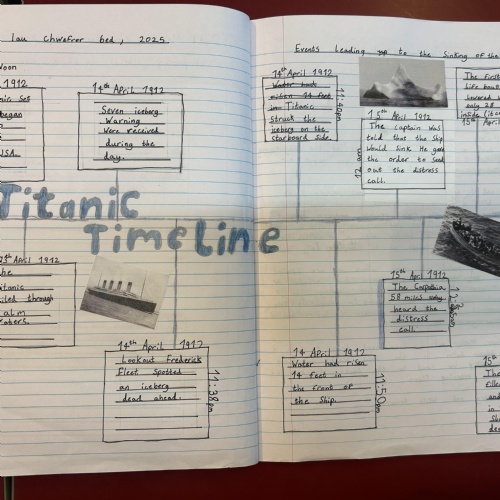 Iau Chwefror 6ed, 2025
Noon
1912
nic Set
began
USA.
14th April 1912
Seven iceberg
Warning
Were received
during the
day.
Titanic
TimeLine
13th April 1912
the
Titanic
sailed through
calm
waters.
14th April 1912
Lookout Frederick
Fleet Spotted
an iceberg
dead ahead.
11:38pm
Events Leading up to the Sinking of the
14th April 1912
Titanic
Struck the
iceberg on the
starboard side.
11:40pm
15th April 1912
The captain was
told that the ship
would sink He gave
the order to send
out the distress
call.
12
The first
Life boat
lowered
only 28
inside
15th April
14 April 1912
Water had risen
14 feet in
the front of
the ship.
11:50pm
15th April 1912
The Carpathia
58 miles away
heard the
distress
call.
15th
The
fille
and
in
Sh
de